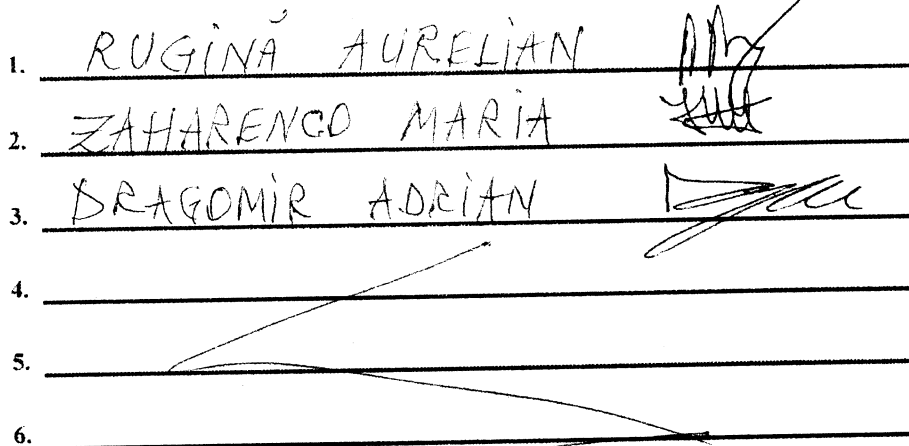 1. RUGINĂ AURELIAN
2. ZAHARENCO MARIA
3. DRAGOMIR ADRIAN
4.
5.
6.